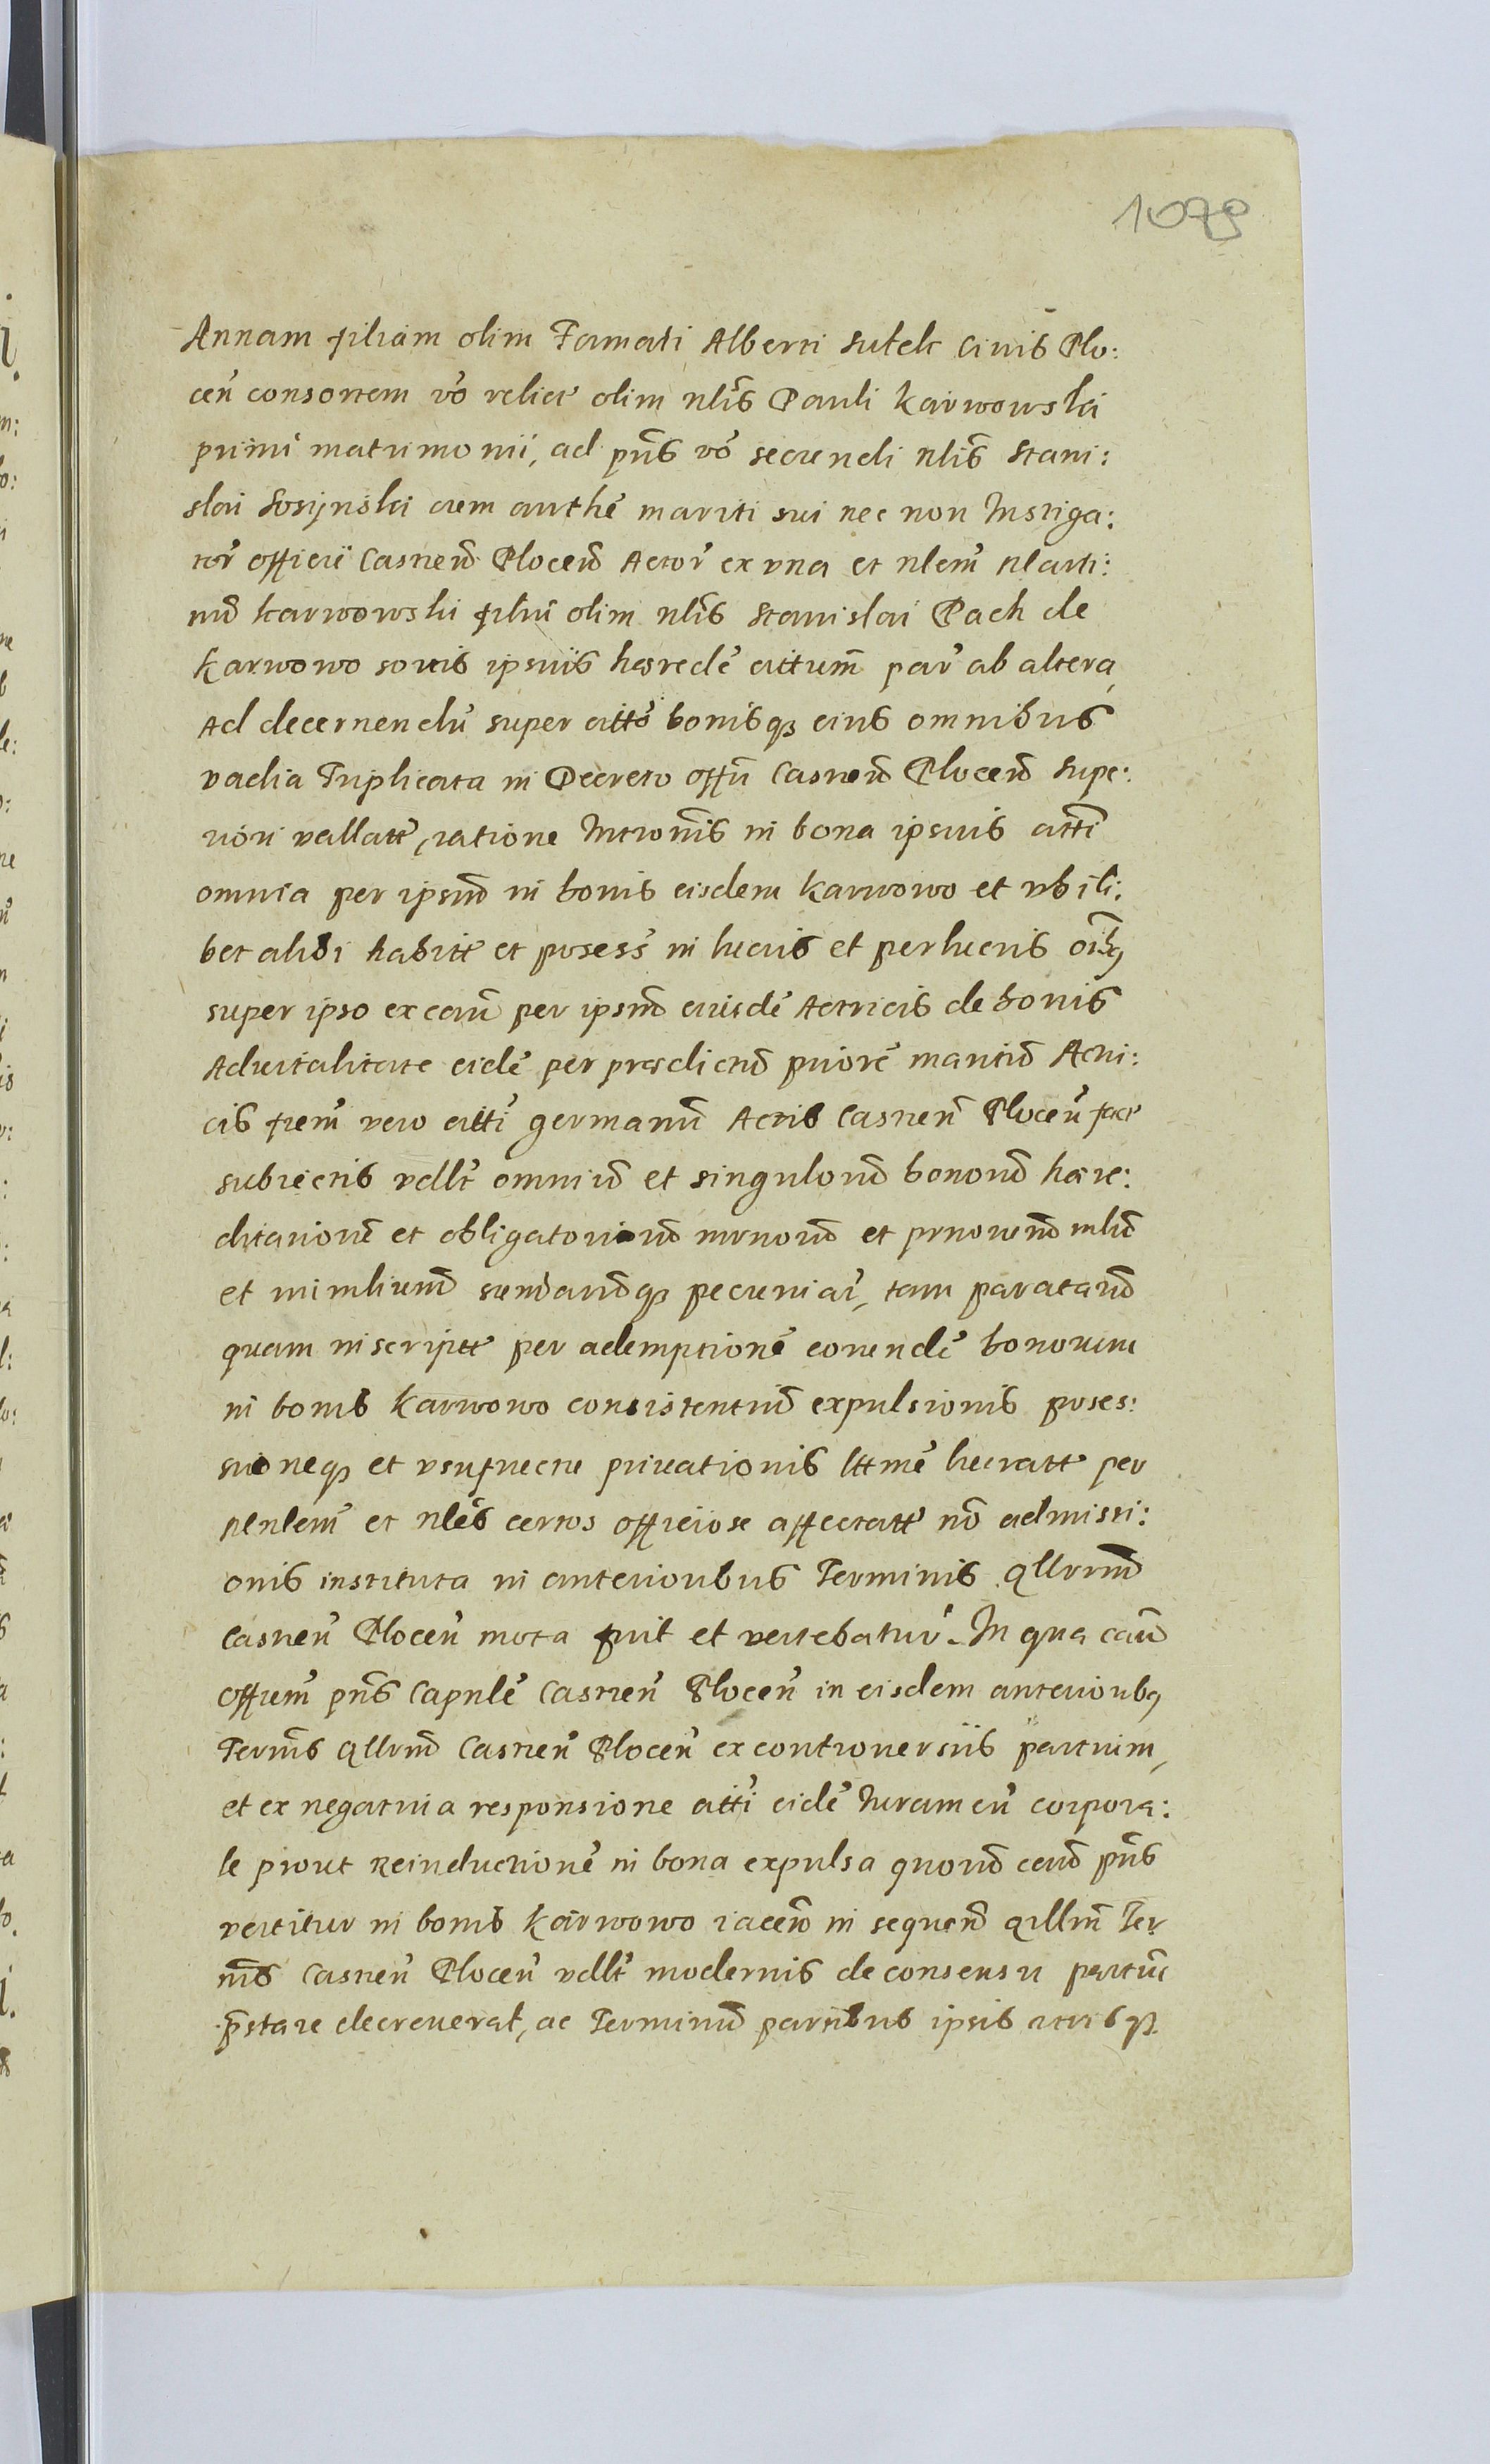 1079
Annam filiam olim Famati Alberti Sutek Civis Plo:
cen̄ consortem vō relict olim nlis Pauli Karwowski
primi matrimonii, ad pn̄s vō secundi nlis Stani:
slai Sosÿnski cum authe mariti sui nec non Instiga:
tor officii Castren Plocen Actor ex vna et nlem Marti:
nu Karwowski filiu olim nlis Stanislai Pach de
Karwowo sortis ipsius hæredē cittum par ab altera,
Ad decernendū super citto bonisq3 eius omnibus
vadia Triplicata in Decreto offii Castren Plocen Supe:
riori vallatt, ratione Intronis in bona ipsius citti
omnia per ipsum in bonis eisdem Karwowo et vbili:
bet alibi habitt et posess in lucris et perlucris oibq
super ipso ex cau per ipsum eiusdē Actricis de bonis
Aduitalitate eidē per prædictu priorē maritu Actri:
cis frem vero citti germanu Actis Castren Plocen fact
subiectis vdllt omniu et singuloru bonoru hære:
ditariore et obligatorioru mrnoru et prnoru mliu
et inmlium sumaruq3 pecuniar, tam parataru
quam inscriptt per ademptionē eorundē bonorum
in bonis Karwowo consistentiu expulsionis poses:
sioneq3 et vsufructu priuationis lttme lucratt per
Mnlem et nles certos officiose affectatt no admissi:
onis instituta in anterioribus Terminis qllrum
Castren Plocen mota fuit et vertebatur. In qua cau
offium pn̄s Capnle Castren Plocen in eisdem anterioribq
Termis qllrum Castren Plocen ex controuersiis partium,
et ex negatiua responsione citti eidē Iuramentu corpora:
le prout Reinductionē in bona expulsa quoru cau pn̄s
vertitur in bonis Karwowo iacen in sequen qllrm Ter
mis Castren Plocen vdllt modernis de consensu partiu
p̄stare decreuerat, ac Terminu partibus ipsis